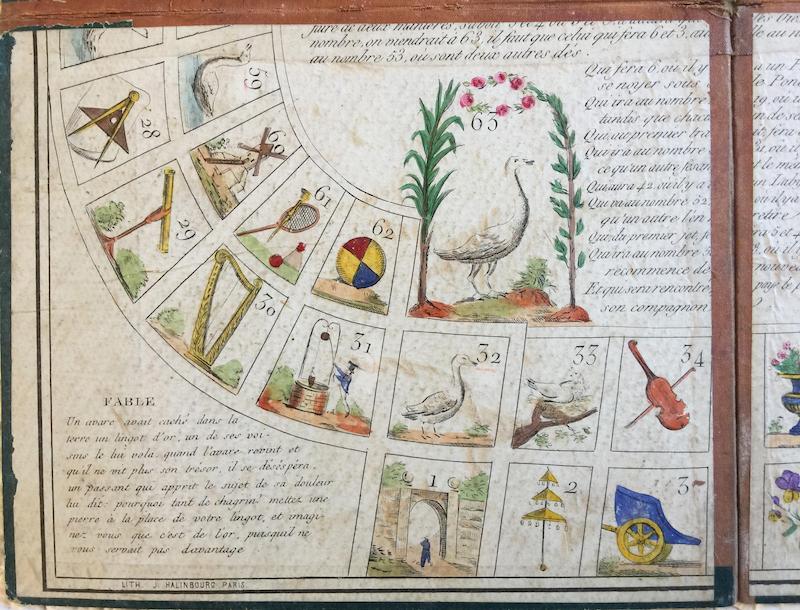 faire de deux manières, savoir 5 et 4 ou 6 et 3,
nombre, on viendrait à 63, il faut que celui qui fera 6 et 3, au
au nombre 53, ou sont deux autres dés.
Qui fera 6, ou il y
se noyer sous
Qui ira au nombre
tandis que chac
Qui, au premier
Qui ira au nombre
ce qu'un autre
Qui aura 42, ou il y a
Qui va au nombre 52
qu'un autre l'en
Qui du premier jet,
Qui ira au nombre 5
recommence de
Et qui sera rencontré
son compagnon
a un P
le Pon
19, ou
fera
ou il
et le
un Lab
retire
ra 5 et 4
ou il
nouve
paye le
59
28
60
29
61
62
63
30
31
32
33
34
1
2
3
FABLE
Un avare avait caché dans la
terre un lingot d'or, un de ses voi-
sins le lui vola, quand l'avare revint et
qu'il ne vit plus son trésor, il se déséspéra,
un passant qui apprit le sujet de sa douleur
lui dit: pourquoi tant de chagrin? mettez une
pierre à la place de votre lingot, et imagi-
nez vous que c'est de l'or, puisqu'il ne
vous servait pas d'avantage
LITH. J. HALINBOURG PARIS.